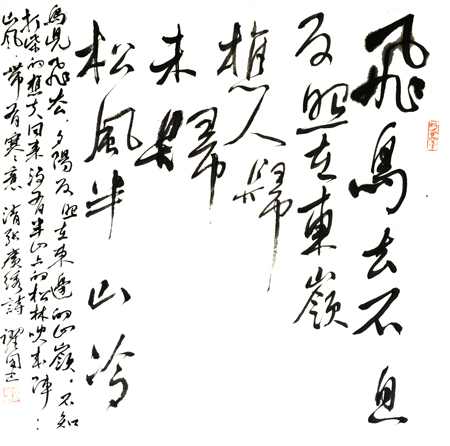 飛鳥去不息
反照在東嶺
樵人歸
未歸
松風半山冷
鳥兒飛去夕陽反照在東邊的山嶺，不知
打柴的樵夫回來沒有半山上的松林吹來陣：
山風，帶有寒：意 清張廣